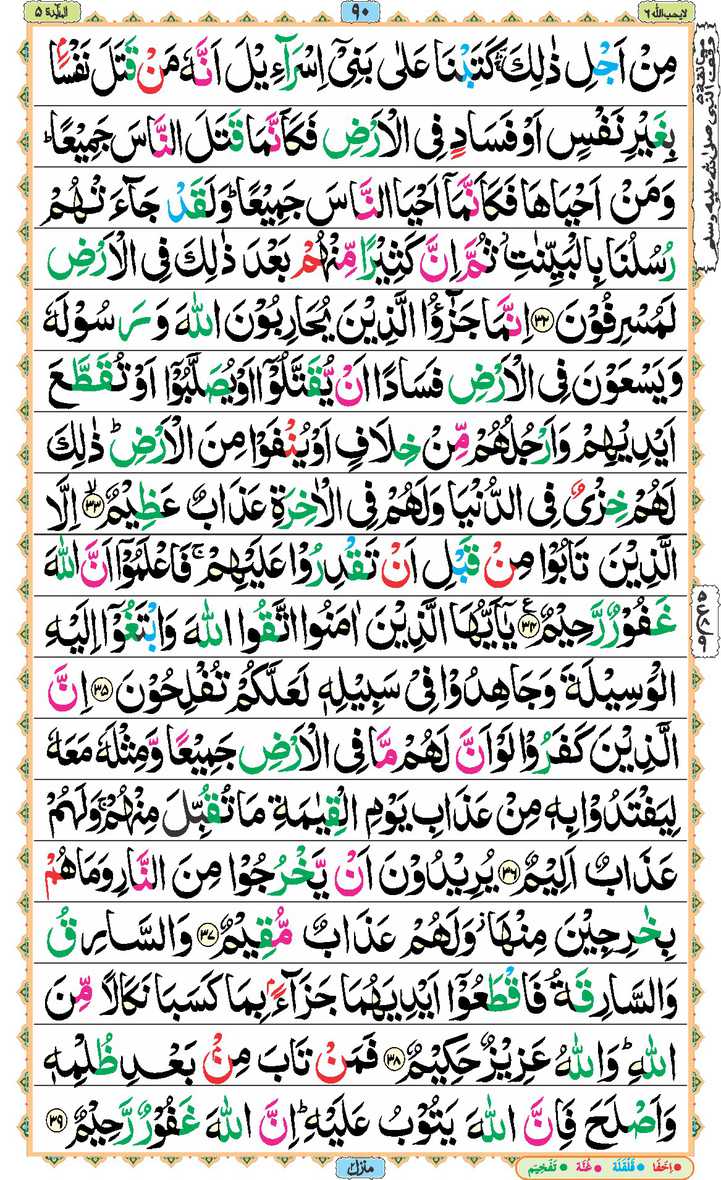 المآئدة ٥
٩٠
لا يحب الله ٦
مِنْ اَجْلِ ذٰلِكَ ۛۚ كَتَبْنَا عَلٰى بَنِیْۤ اِسْرَآءِیْلَ اَنَّهٗ مَنْ قَتَلَ نَفْسًۢا
بِغَیْرِ نَفْسٍ اَوْ فَسَادٍ فِی الْاَرْضِ فَكَاَنَّمَا قَتَلَ النَّاسَ جَمِیْعًا ؕ
وَمَنْ اَحْیَاهَا فَكَاَنَّمَاۤ اَحْیَا النَّاسَ جَمِیْعًا ؕ وَلَقَدْ جَآءَتْهُمْ
رُسُلُنَا بِالْبَیِّنٰتِ ؗ ثُمَّ اِنَّ كَثِیْرًا مِّنْهُمْ بَعْدَ ذٰلِكَ فِی الْاَرْضِ
لَمُسْرِفُوْنَ ﴿۳۲﴾ اِنَّمَا جَزٰٓؤُا الَّذِیْنَ یُحَارِبُوْنَ اللّٰهَ وَرَسُوْلَهٗ
وَیَسْعَوْنَ فِی الْاَرْضِ فَسَادًا اَنْ یُّقَتَّلُوْۤا اَوْ یُصَلَّبُوْۤا اَوْ تُقَطَّعَ
اَیْدِیْهِمْ وَاَرْجُلُهُمْ مِّنْ خِلَافٍ اَوْ یُنْفَوْا مِنَ الْاَرْضِ ؕ ذٰلِكَ
لَهُمْ خِزْیٌ فِی الدُّنْیَا وَلَهُمْ فِی الْاٰخِرَةِ عَذَابٌ عَظِیْمٌ ﴿۳۳﴾ۙ اِلَّا
الَّذِیْنَ تَابُوْا مِنْ قَبْلِ اَنْ تَقْدِرُوْا عَلَیْهِمْ ۚ فَاعْلَمُوْۤا اَنَّ اللّٰهَ
غَفُوْرٌ رَّحِیْمٌ ﴿۳۴﴾۠ یٰۤاَیُّهَا الَّذِیْنَ اٰمَنُوا اتَّقُوا اللّٰهَ وَابْتَغُوْۤا اِلَیْهِ
الْوَسِیْلَةَ وَجَاهِدُوْا فِیْ سَبِیْلِهٖ لَعَلَّكُمْ تُفْلِحُوْنَ ﴿۳۵﴾ اِنَّ
الَّذِیْنَ كَفَرُوْا لَوْ اَنَّ لَهُمْ مَّا فِی الْاَرْضِ جَمِیْعًا وَّمِثْلَهٗ مَعَهٗ
لِیَفْتَدُوْا بِهٖ مِنْ عَذَابِ یَوْمِ الْقِیٰمَةِ مَا تُقُبِّلَ مِنْهُمْ ۚ وَلَهُمْ
عَذَابٌ اَلِیْمٌ ﴿۳۶﴾ یُرِیْدُوْنَ اَنْ یَّخْرُجُوْا مِنَ النَّارِ وَمَا هُمْ
بِخٰرِجِیْنَ مِنْهَا ؗ وَلَهُمْ عَذَابٌ مُّقِیْمٌ ﴿۳۷﴾ وَالسَّارِقُ
وَالسَّارِقَةُ فَاقْطَعُوْۤا اَیْدِیَهُمَا جَزَآءًۢ بِمَا كَسَبَا نَكَالًا مِّنَ
اللّٰهِ ؕ وَاللّٰهُ عَزِیْزٌ حَكِیْمٌ ﴿۳۸﴾ فَمَنْ تَابَ مِنْۢ بَعْدِ ظُلْمِهٖ
وَاَصْلَحَ فَاِنَّ اللّٰهَ یَتُوْبُ عَلَیْهِ ؕ اِنَّ اللّٰهَ غَفُوْرٌ رَّحِیْمٌ ﴿۳۹﴾
معانقة ۵
وقف النبي صلى الله عليه وسلم
منزل ٢
اِخفَا • قَلقَلَة • غُنَّة • تَفخِیم •